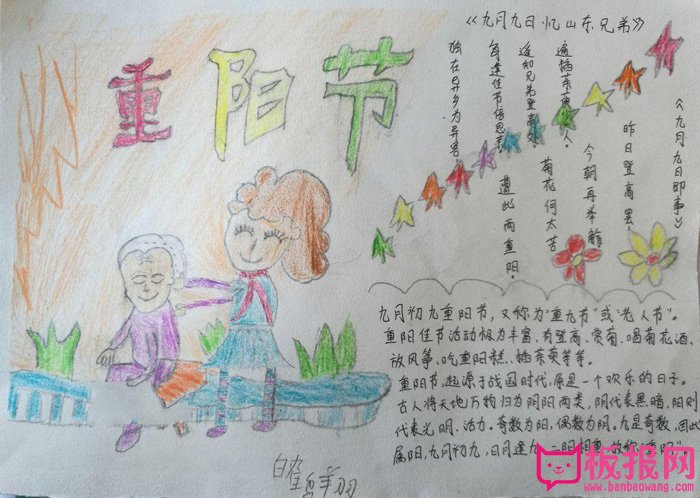 重阳节
《九月九日忆山东兄弟》
独在异乡为异客
每逢佳节倍思亲
遥知兄弟登高处
遍插茱萸少人
《九月九日即事》
昨日登高罢
今朝再举觞
菊花何太苦
遭此两重阳
九月初九重阳节，又称为“重九节”或“老人节”。
重阳佳节活动极为丰富，有登高、赏菊、喝菊花酒、
放风筝、吃重阳糕、插茱萸等等。
重阳节，起源于战国时代，原是一个欢乐的日子。
古人将天地万物归为阴阳两类，阴代表黑暗，阳则
代表光明、活力。奇数为阳，偶数为阴。九是奇数，因此
属阳，九月初九，日月逢九，二阳相重，故称“重阳”。
板报网
www.banbaowang.com